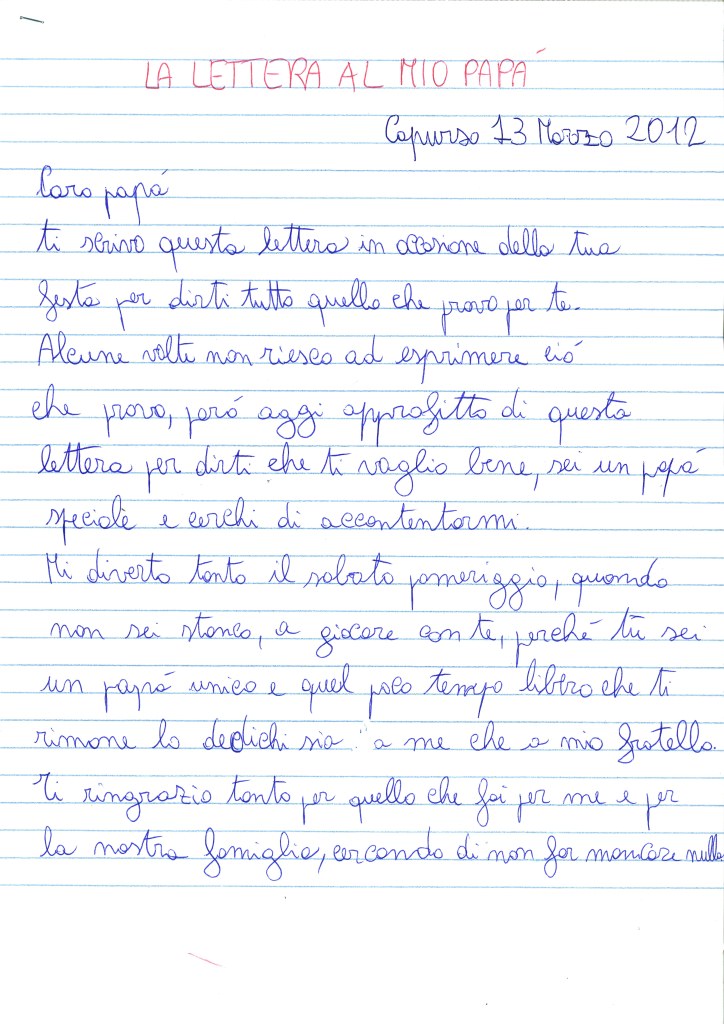 LA LETTERA AL MIO PAPÁ
Capurso 13 Marzo 2012
Caro papá
ti scrivo questa lettera in occasione della tua
festa per dirti tutto quello che provo per te.
Alcune volte non riesco ad esprimere ció
che provo, peró oggi approfitto di questa
lettera per dirti che ti voglio bene, sei un papá
speciale e cerchi di accontentarmi.
Mi diverto tanto il sabato pomeriggio, quando
non sei stanco, a giocare con te, perché tu sei
un papá unico e quel poco tempo libero che ti
rimane lo dedichi sia a me che a mio fratello.
Ti ringrazio tanto per quello che fai per me e per
la nostra famiglia, cercando di non far mancare nulla